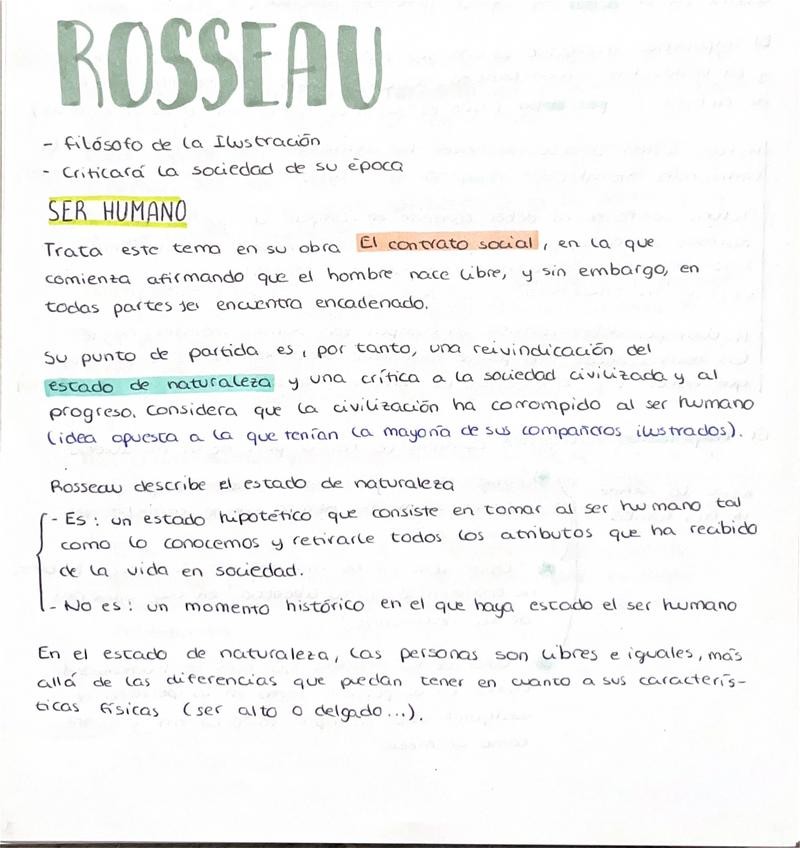 ROSSEAU
- filósofo de la Ilustración
- Criticará la sociedad de su época
SER HUMANO
Trata este tema en su obra El contrato social, en la que
comienza afirmando que el hombre nace libre, y sin embargo, en
todas partes se encuentra encadenado.
Su punto de partida es, por tanto, una reivindicación del
estado de naturaleza y una crítica a la sociedad civilizada y al
progreso. Considera que la civilización ha corrompido al ser humano
(idea opuesta a la que tenían la mayoría de sus compañeros ilustrados).
Rosseau describe el estado de naturaleza
- Es: un estado hipotético que consiste en tomar al ser humano tal
como lo conocemos y retirarle todos los atributos que ha recibido
de la vida en sociedad.
- No es: un momento histórico en el que haya estado el ser humano
En el estado de naturaleza, las personas son libres e iguales, más
allá de las diferencias que puedan tener en cuanto a sus caracterís-
ticas físicas (ser alto o delgado...).